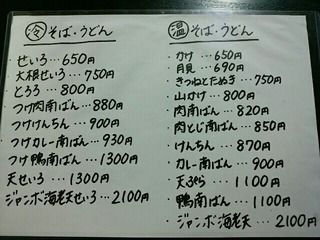 冷 そば・うどん
・せいろ…650円
・大根せいろ…750円
・とろろ…800円
・つけ肉南ばん…880円
・つけけんちん…900円
・つけカレー南ばん…930円
・つけ鴨南ばん…1300円
・天せいろ…1300円
・ジャンボ海老天せいろ…2100円
温 そば・うどん
・かけ…650円
・月見…690円
・きつねとたぬき…750円
・山かけ…800円
・肉南ばん…820円
・肉とじ南ばん…850円
・けんちん…870円
・カレー南ばん…900円
・天ぷら…1100円
・鴨南ばん…1100円
・ジャンボ海老天…2100円